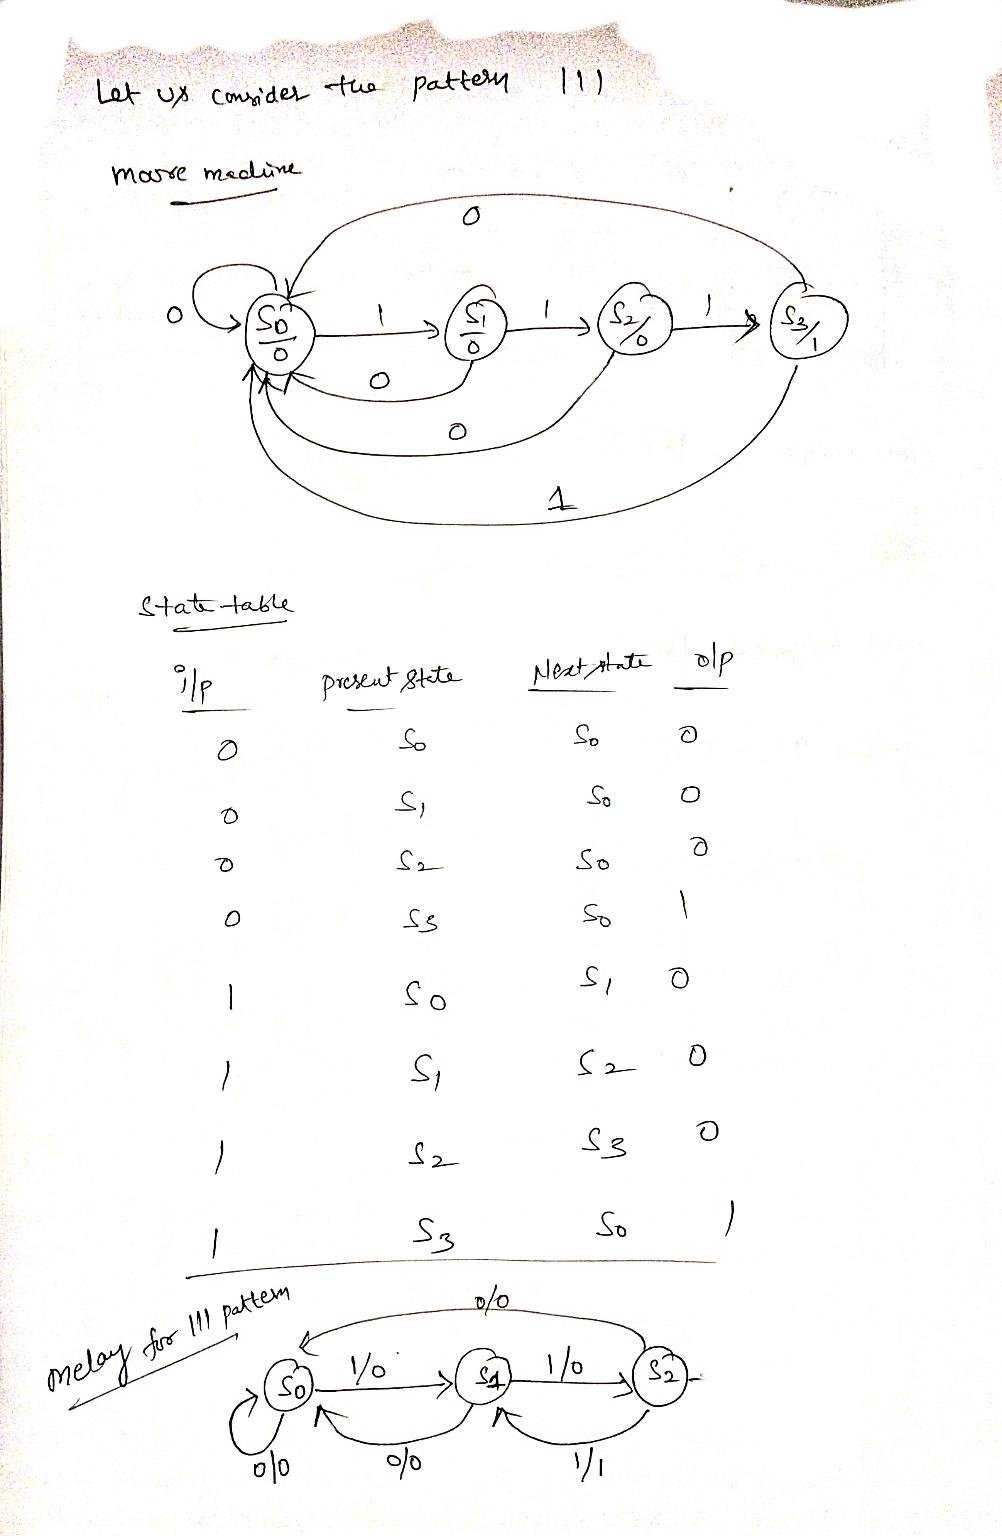 Let us consider the pattern 111
moore machine
0
0 S0/0 1 S1/0 1 S2/0 1 S3/1
0
0
1
State table
i/p present state Next state o/p
0 S0 S0 0
0 S1 S0 0
0 S2 S0 0
0 S3 S0 1
1 S0 S1 0
1 S1 S2 0
1 S2 S3 0
1 S3 S0 1
melay for 111 pattern
0/0
S0 1/0 S1 1/0 S2
0/0 0/0 1/1